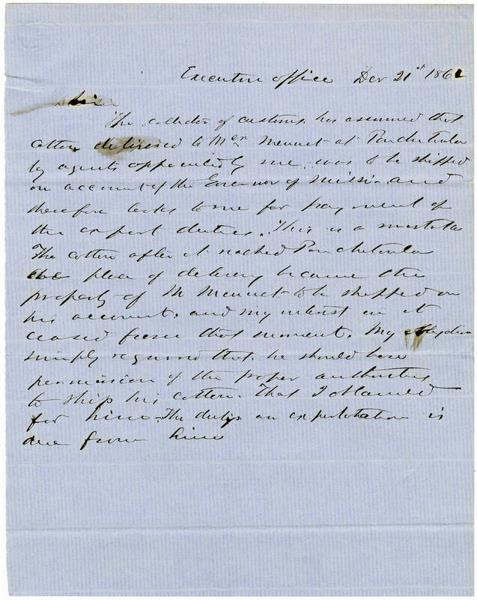 Executive office Dec 21st 1862
Sir
The collector of customs has assumed that
cotton delivered to Mr Mennet at Ponchatoula
by agents appointed by me was to be shipped
on account of the Governor of Missi. and
therefore looks to me for payment of
the export duties. This is a mistake
The cotton after it reached Ponchatoula
the place of delivery became the
property of M Mennet to be shipped on
his account, and my interest in it
ceased from that moment. My obligation
simply required that he should have
permission of the proper authorities
to ship his cotton. That I obtained
for him. The duty on exportation is
due from him